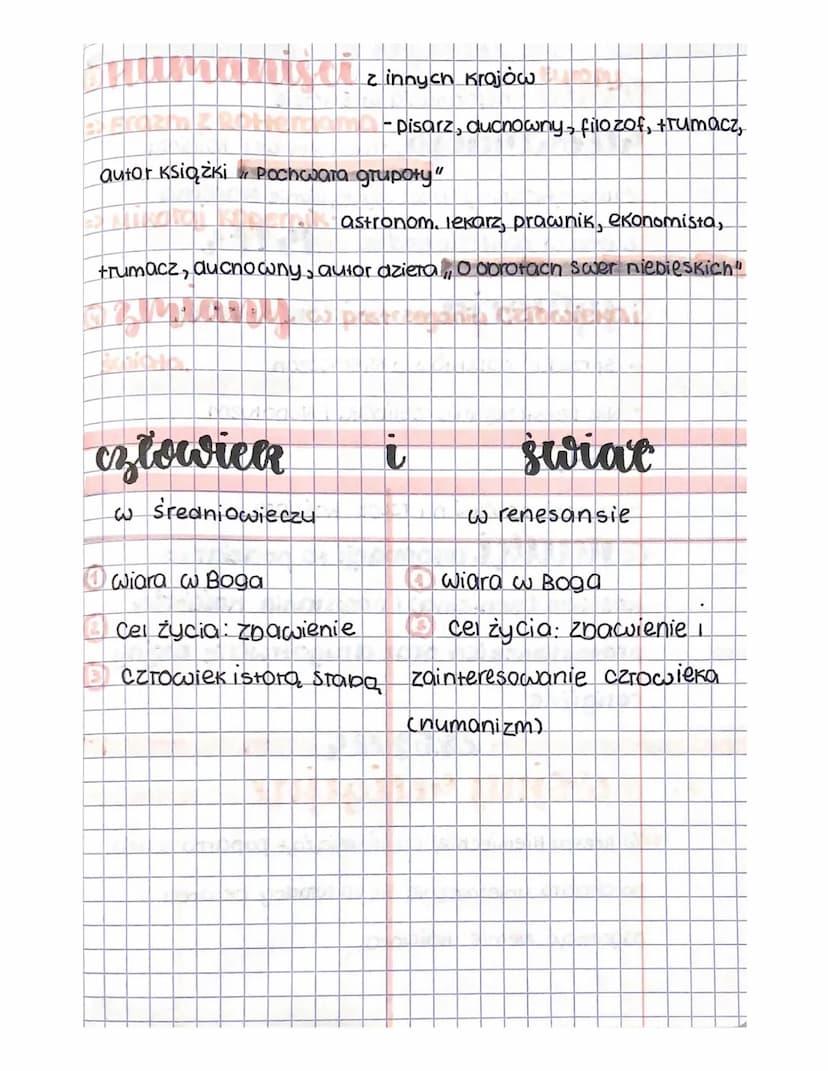 humaniści z innych krajów Europy
=> Erazm z Rotterdamu - pisarz, duchowny, filozof, tłumacz,
autor książki „Pochwała głupoty"
=> Mikołaj Kopernik astronom. lekarz, prawnik, ekonomista,
tłumacz, duchowny, autor dzieła „O obrotach swer niebieskich"
④ zmiany w postrzeganiu człowieka i
świata.
człowiek i świat
w średniowieczu w renesansie
① wiara w Boga ① wiara w Boga
② cel życia: zbawienie ② cel życia: zbawienie i
③ człowiek istotą słabą zainteresowanie człowieka
(humanizm)